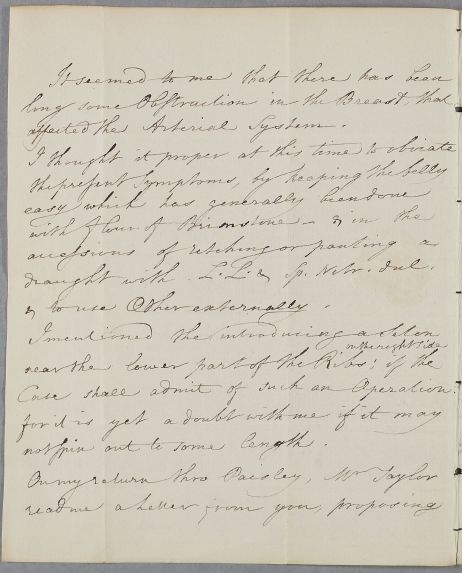 It seemed to me that there has been
long some Obstruction in the Breast, that
affected the Arterial System.
I thought it proper at this time to obviate
the present Symptoms, by keeping the belly
easy which has generally been done
with flour of Brimstone - & in the
accessions of retching or panting a
draught with L.L. & Sp. Nitr. dul.
& to use Other externally.
I mentioned the introducing a Seton
near the lower part of the Ribs; if the
on the right side
Case shall admit of such an Operation.
for it is yet a doubt with me if it may
not spin out to some length.
On my return thro Paisley, Mr Taylor
read me a letter from you, proposing